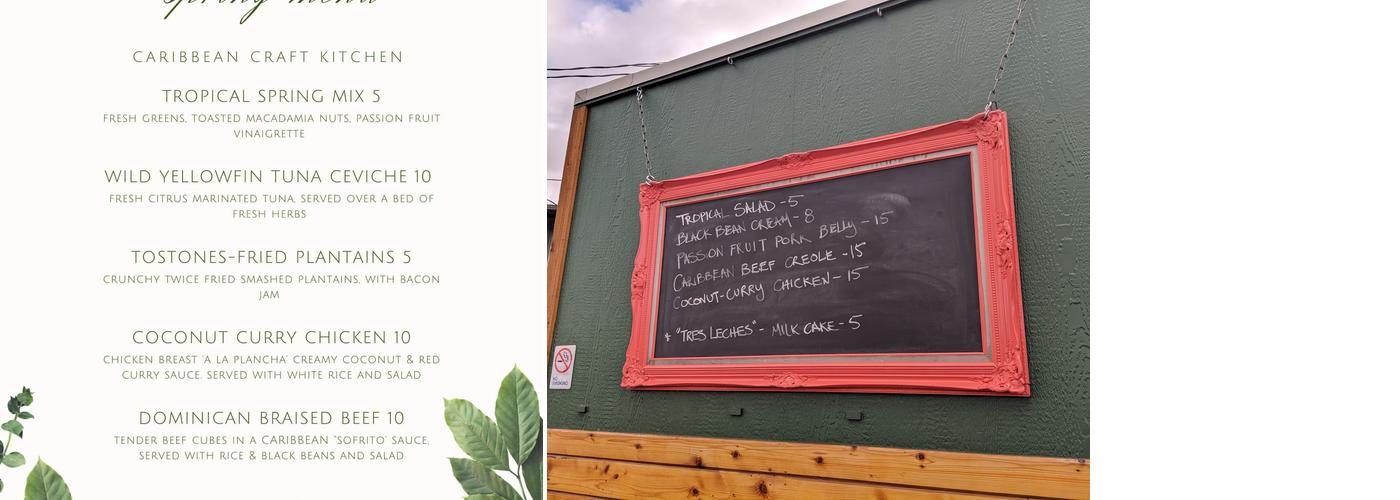 spring menu
CARIBBEAN CRAFT KITCHEN
TROPICAL SPRING MIX 5
FRESH GREENS, TOASTED MACADAMIA NUTS, PASSION FRUIT
VINAIGRETTE
WILD YELLOWFIN TUNA CEVICHE 10
FRESH CITRUS MARINATED TUNA, SERVED OVER A BED OF
FRESH HERBS
TOSTONES-FRIED PLANTAINS 5
CRUNCHY TWICE FRIED SMASHED PLANTAINS, WITH BACON
JAM
COCONUT CURRY CHICKEN 10
CHICKEN BREAST 'A LA PLANCHA' CREAMY COCONUT & RED
CURRY SAUCE. SERVED WITH WHITE RICE AND SALAD
DOMINICAN BRAISED BEEF 10
TENDER BEEF CUBES IN A CARIBBEAN "SOFRITO' SAUCE,
SERVED WITH RICE & BLACK BEANS AND SALAD
TROPICAL SALAD - 5
BLACK BEAN CREAM - 8
PASSION FRUIT PORK BELLY - 15
CARIBBEAN BEEF CREOLE - 15
COCONUT-CURRY CHICKEN - 15
* "TRES LECHES" - MILK CAKE - 5
NO
SMOKING